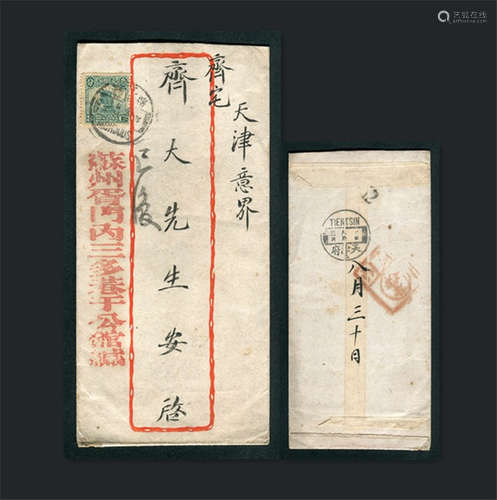 天津意界
齊宅
齊大先生安啓
蘇州胥門內三多巷于公館緘
TIENTSIN
府
八月三十日